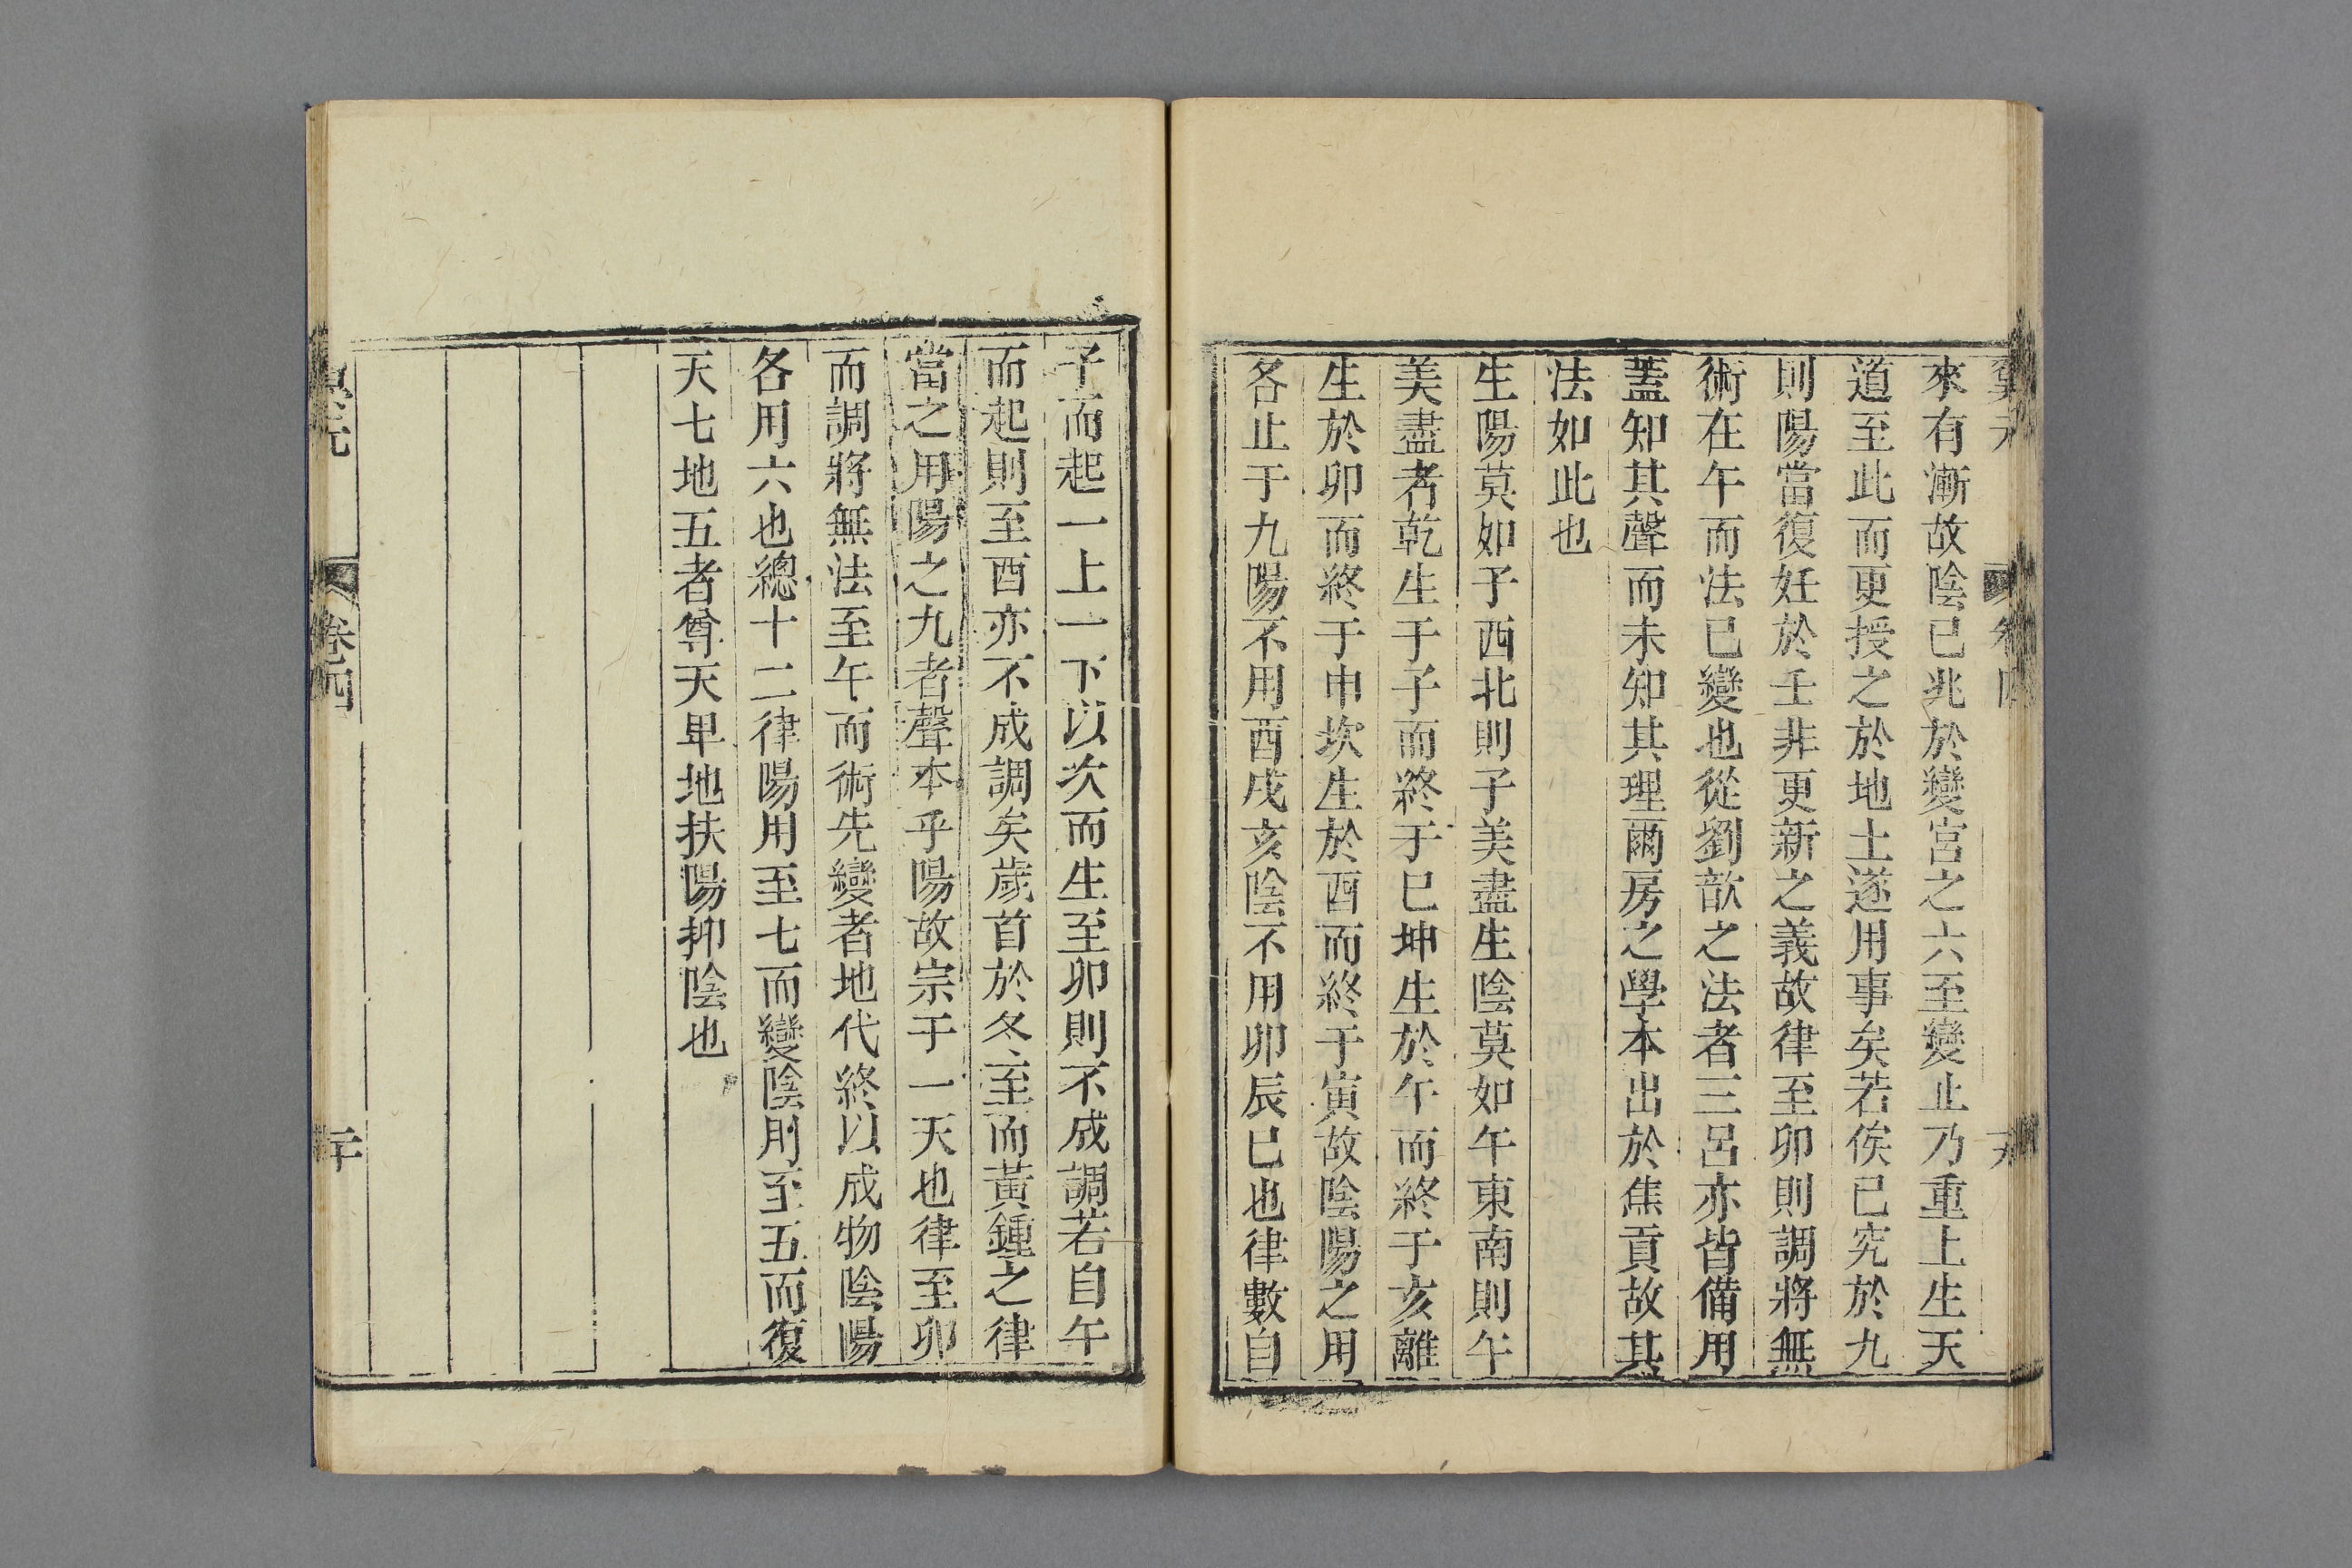 來有漸故陰已兆於變宮之六至變止乃重上生天
道至此而更授之於地土遂用事矣若俟已究於九
則陽當復妊於壬非更新之義故律至卯則調將無
術在午而法已變也從劉歆之法者三呂亦皆備用
蓋知其聲而未知其理爾房之學本出於焦貢故其
法如此也
生陽莫如子西北則子美盡生陰莫如午東南則午
美盡者乾生于子而終于巳坤生於午而終于亥離
生於卯而終于申坎生於酉而終于寅故陰陽之用
各止于九陽不用酉戌亥陰不用卯辰巳也律數自
子而起一上一下以次而生至卯則不成調若自午
而起則至酉亦不成調矣歲首於冬至而黃鍾之律
當之用陽之九者聲本乎陽故宗于一天也律至卯
而調將無法至午而術先變者地代終以成物陰陽
各用六也總十二律陽用至七而變陰用至五而復
天七地五者尊天卑地扶陽抑陰也
卷四